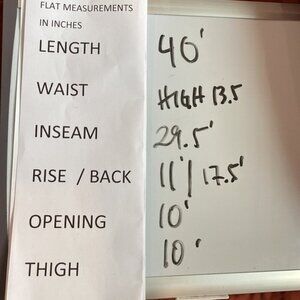 FLAT MEASUREMENTS
IN INCHES
LENGTH 40'
WAIST HIGH 13.5
INSEAM 29.5'
RISE / BACK 11'/17.5'
OPENING 10'
THIGH 10'